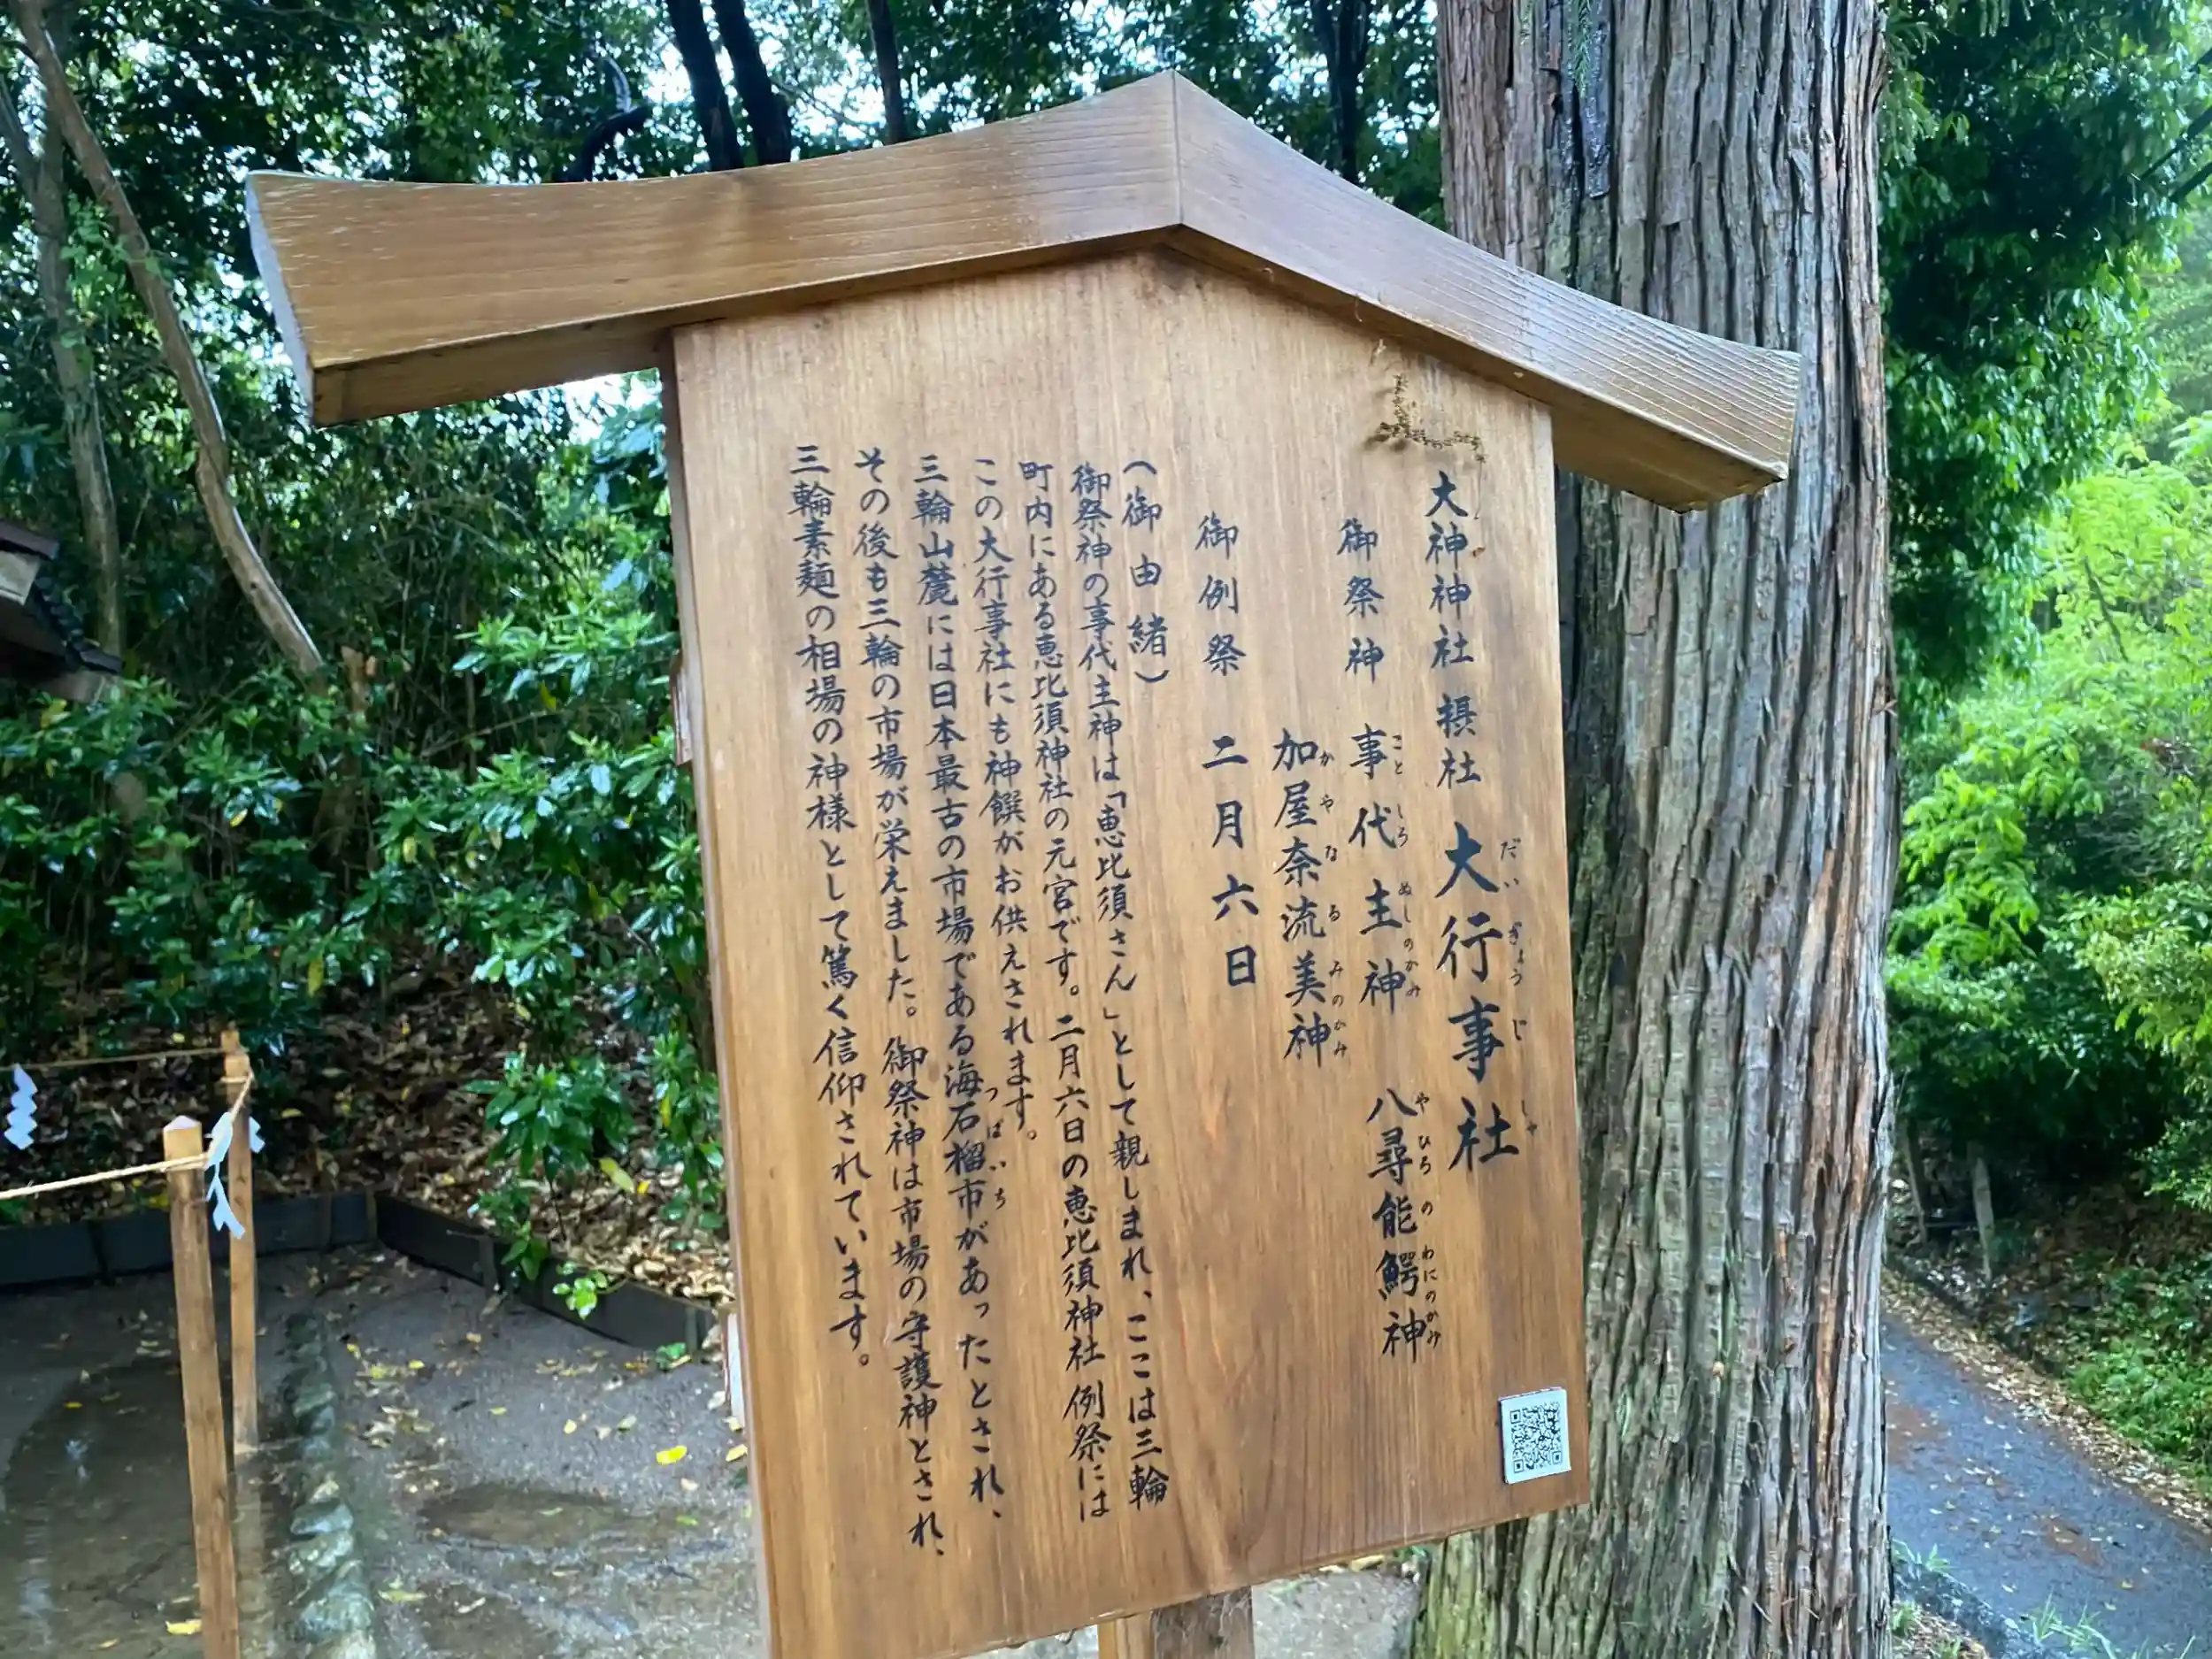 大神神社 摂社 大行事社
だいぎょうじしゃ
御祭神 事代主神 八尋能鰐神
ことしろぬしのかみ やひろのわにのかみ
加屋奈流美神
かやなるみのかみ
御例祭 二月六日
(御由緒)
御祭神の事代主神は「恵比須さん」として親しまれ、ここは三輪
町内にある恵比須神社の元宮です。二月六日の恵比須神社例祭には
この大行事社にも神饌がお供えされます。
三輪山麓には日本最古の市場である海石榴市があったとされ、
つばいち
その後も三輪の市場が栄えました。御祭神は市場の守護神とされ、
三輪素麺の相場の神様として篤く信仰されています。